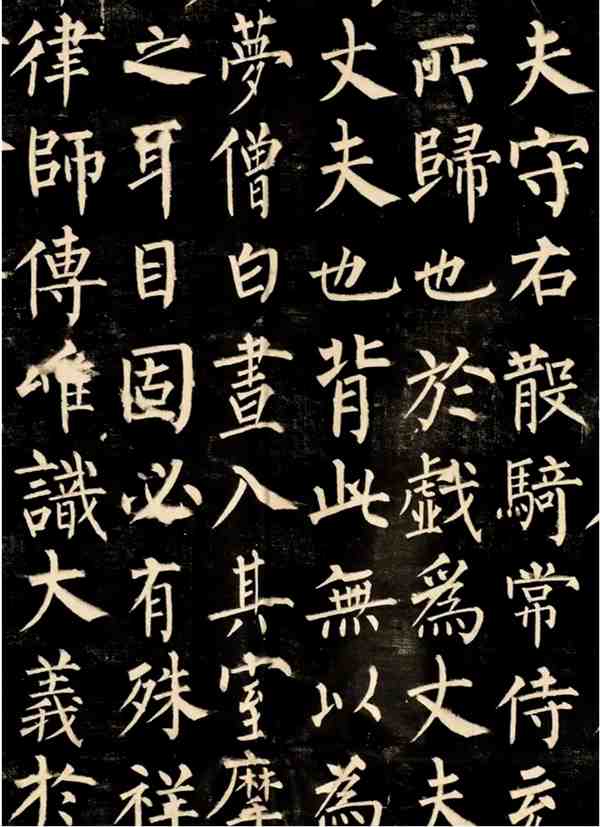 夫守右散騎常侍充
所歸也於戲爲丈夫
丈夫也背此無以為
夢僧白晝入其室摩
之耳目固必有殊祥
律師傳唯識大義於